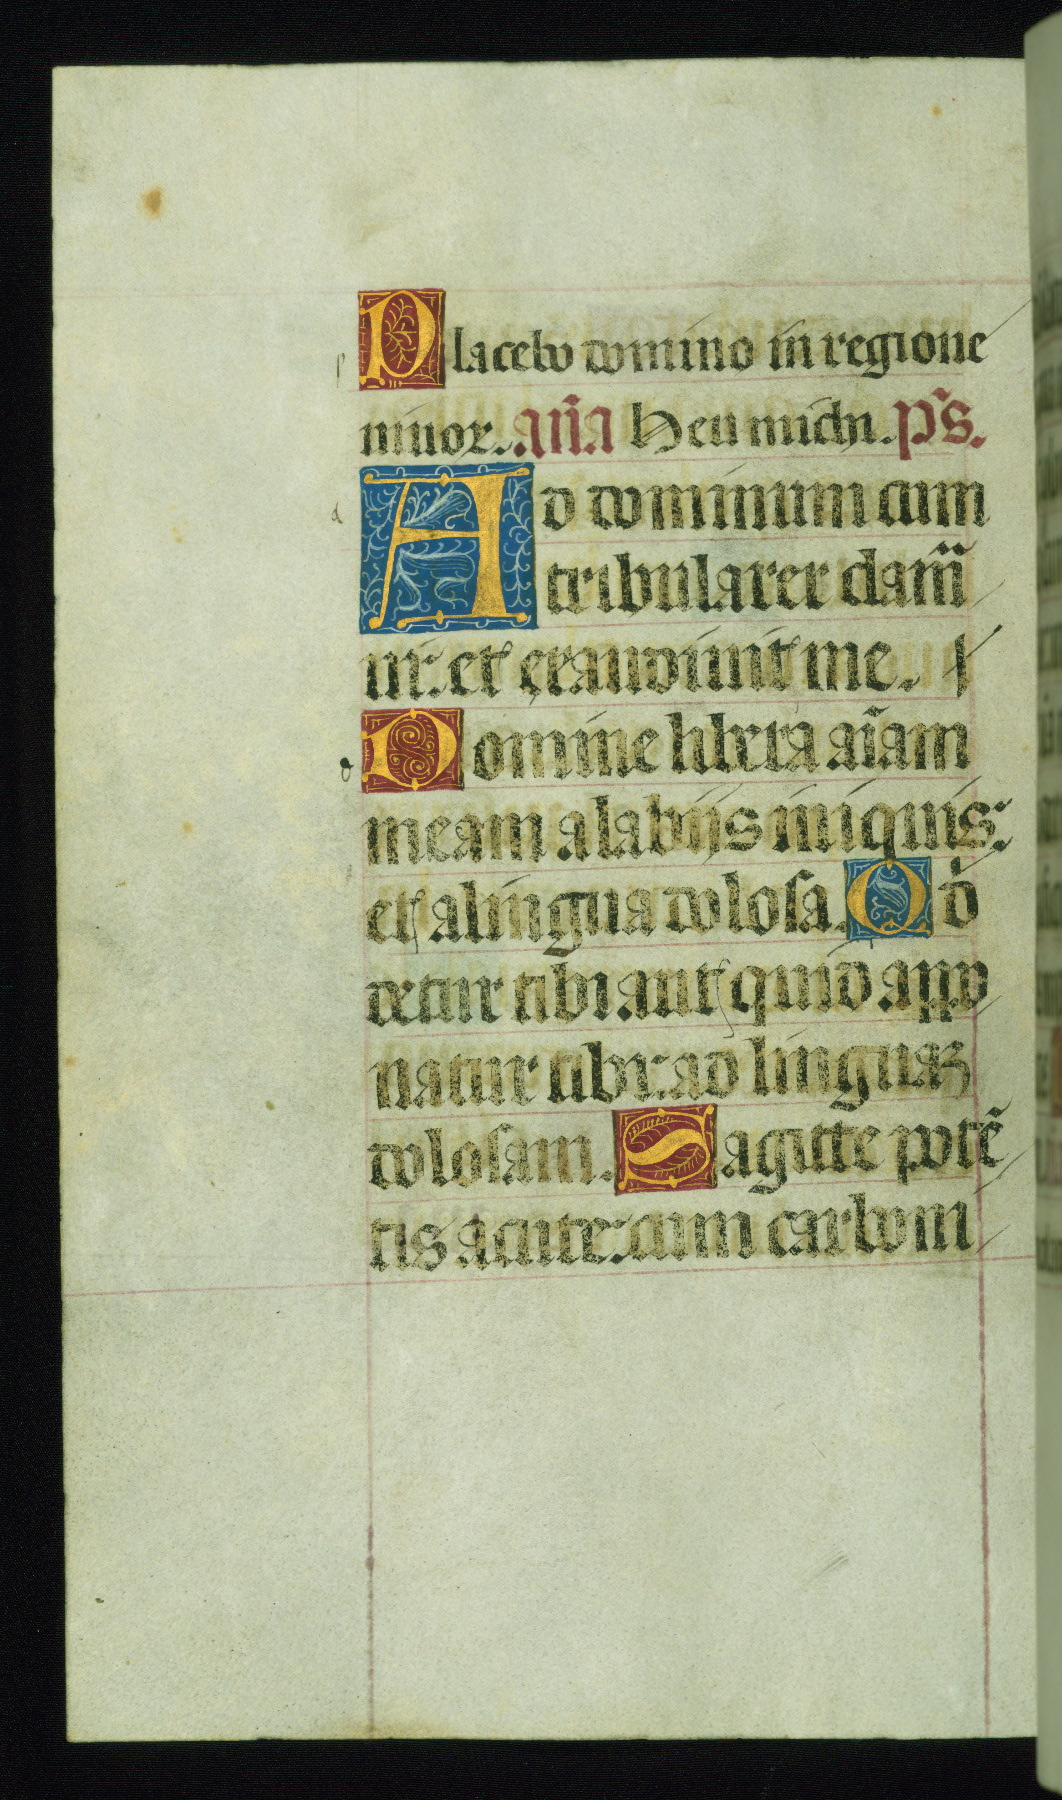 Placebo domino in regione
viuor. an̄a Heu michi. ps̄.
Ad dominum cum
tribularer clam̄
ui: et exaudiuit me.
Domine libera ai̅am
meam a labijs iniquis:
et a lingua dolosa. Qd̓
detur tibi aut quid appo
natur tibi: ad linguaz
dolosam. Sagitte potē
tis acute: cum carboni